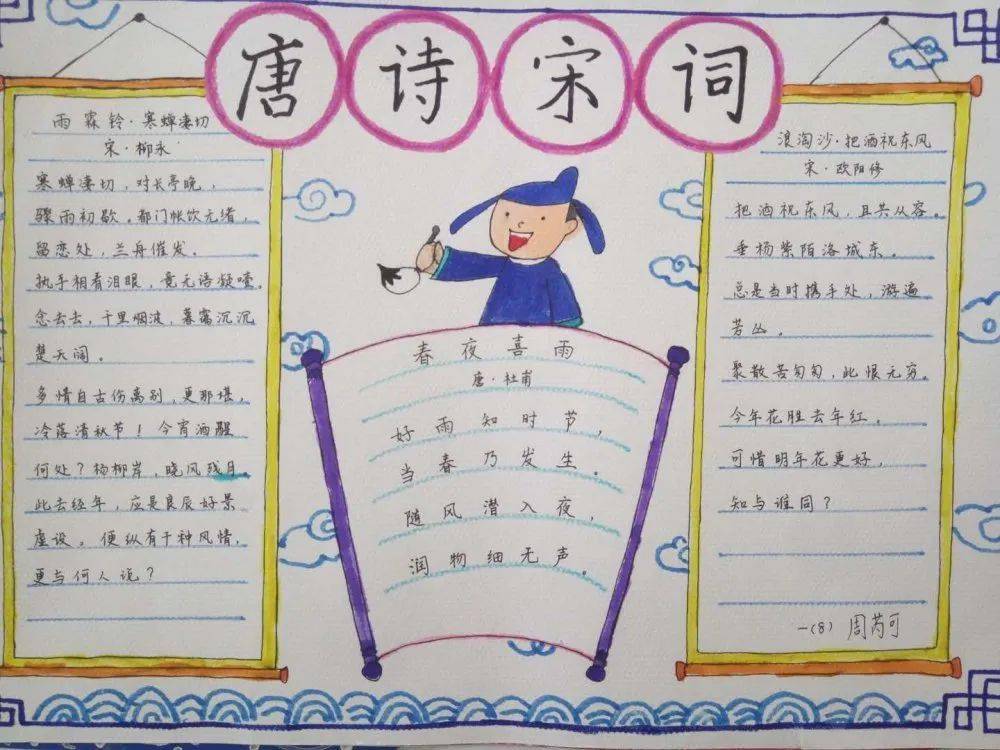 唐诗宋词
雨霖铃·寒蝉凄切
宋·柳永
寒蝉凄切,对长亭晚,
骤雨初歇。都门帐饮无绪,
留恋处,兰舟催发。
执手相看泪眼,竟无语凝噎。
念去去,千里烟波,暮霭沉沉
楚天阔。
多情自古伤离别,更那堪,
冷落清秋节!今宵酒醒
何处?杨柳岸,晓风残月。
此去经年,应是良辰好景
虚设。便纵有千种风情,
更与何人说?
春夜喜雨
唐·杜甫
好雨知时节,
当春乃发生。
随风潜入夜,
润物细无声。
浪淘沙·把酒祝东风
宋·欧阳修
把酒祝东风,且共从容。
垂杨紫陌洛城东。
总是当时携手处,游遍
芳丛。
聚散苦匆匆,此恨无穷。
今年花胜去年红。
可惜明年花更好,
知与谁同?
一(8) 周芮可